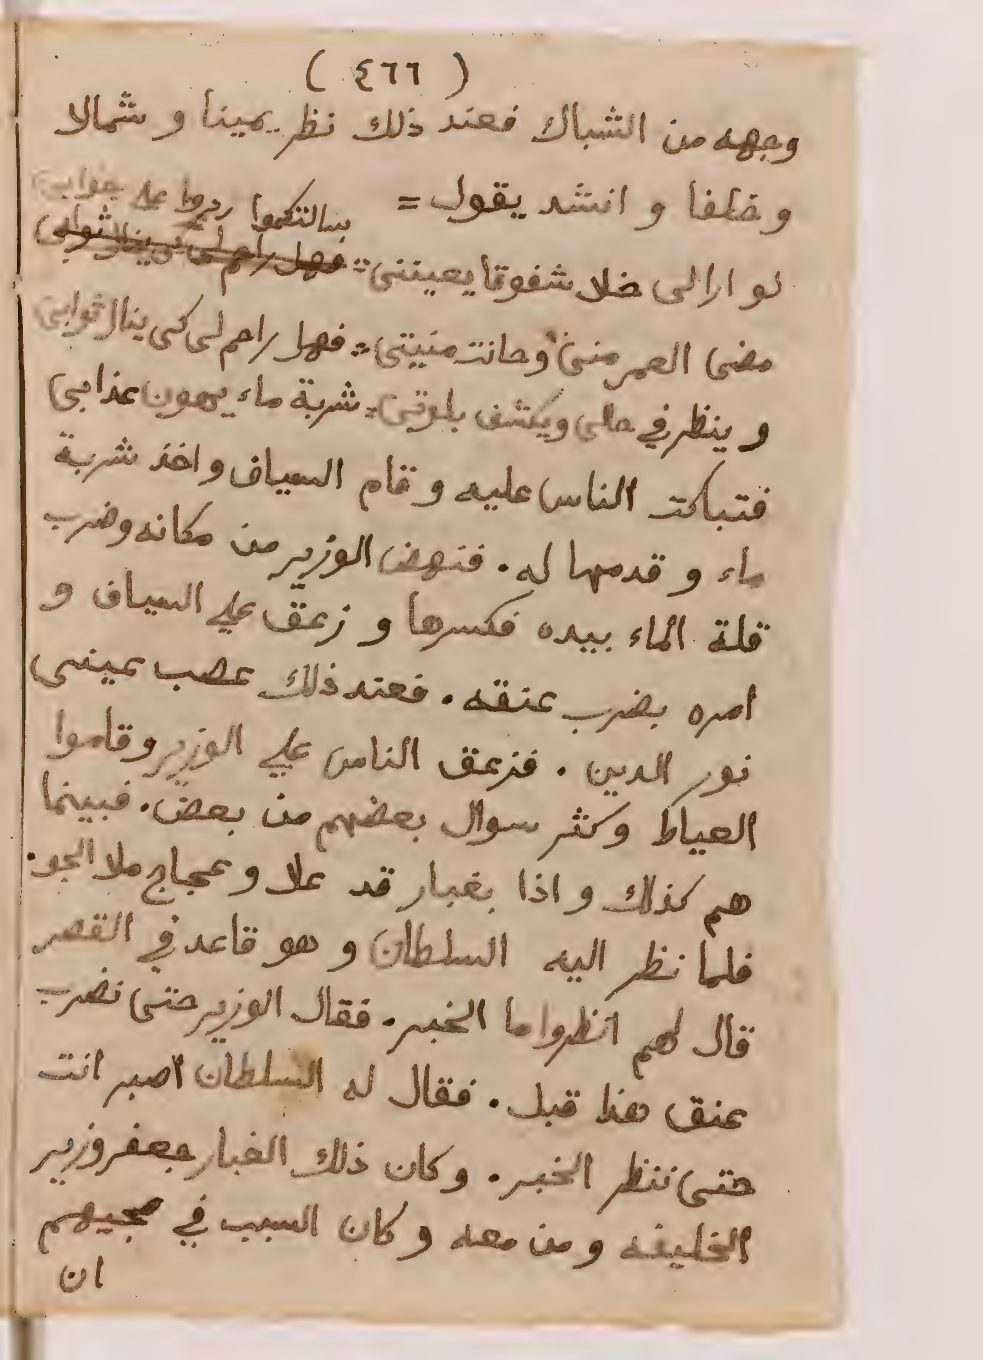 ( ٤٦٦ )
وجهه من الشباك فعند ذلك نظر يمينا و شمالا
و خلفا و انشد يقول =
بالتكموا ردوا علي جوابي
لو ارا لى خلا شفوقا يعيننى : فهل راحم لى كى ينال ثوابى
مضى العمر منى وحانت منيتى : فهل راحم لى كى ينال ثوابى
و ينظر في حالى ويكشف بلوتى : شربة ماء يهون عذابى
فتباكت الناس عليه و قام السياف واخذ شربة
ماء و قدمها له . فنهض الوزير من مكانه وضرب
قلة الماء بيده فكسرها و زعق علي السياف و
امره بضرب عنقه . فعند ذلك عصب عينى
نور الدين . فزعق الناس علي الوزير وقاموا
العياط وكثر سوال بعضهم من بعض . فبينما
هم كذلك و اذا بغبار قد علا و عجاج ملا الجو .
فلما نظر اليه السلطان و هو قاعد في القصر
قال لهم انظروا ما الخبر . فقال الوزير حتى نضرب
عنق هذا قبل . فقال له السلطان اصبر انت
حتى ننظر الخبر . وكان ذلك الغبار جعفر وزير
الخليفه و من معه و كان السبب في مجيهم
ان